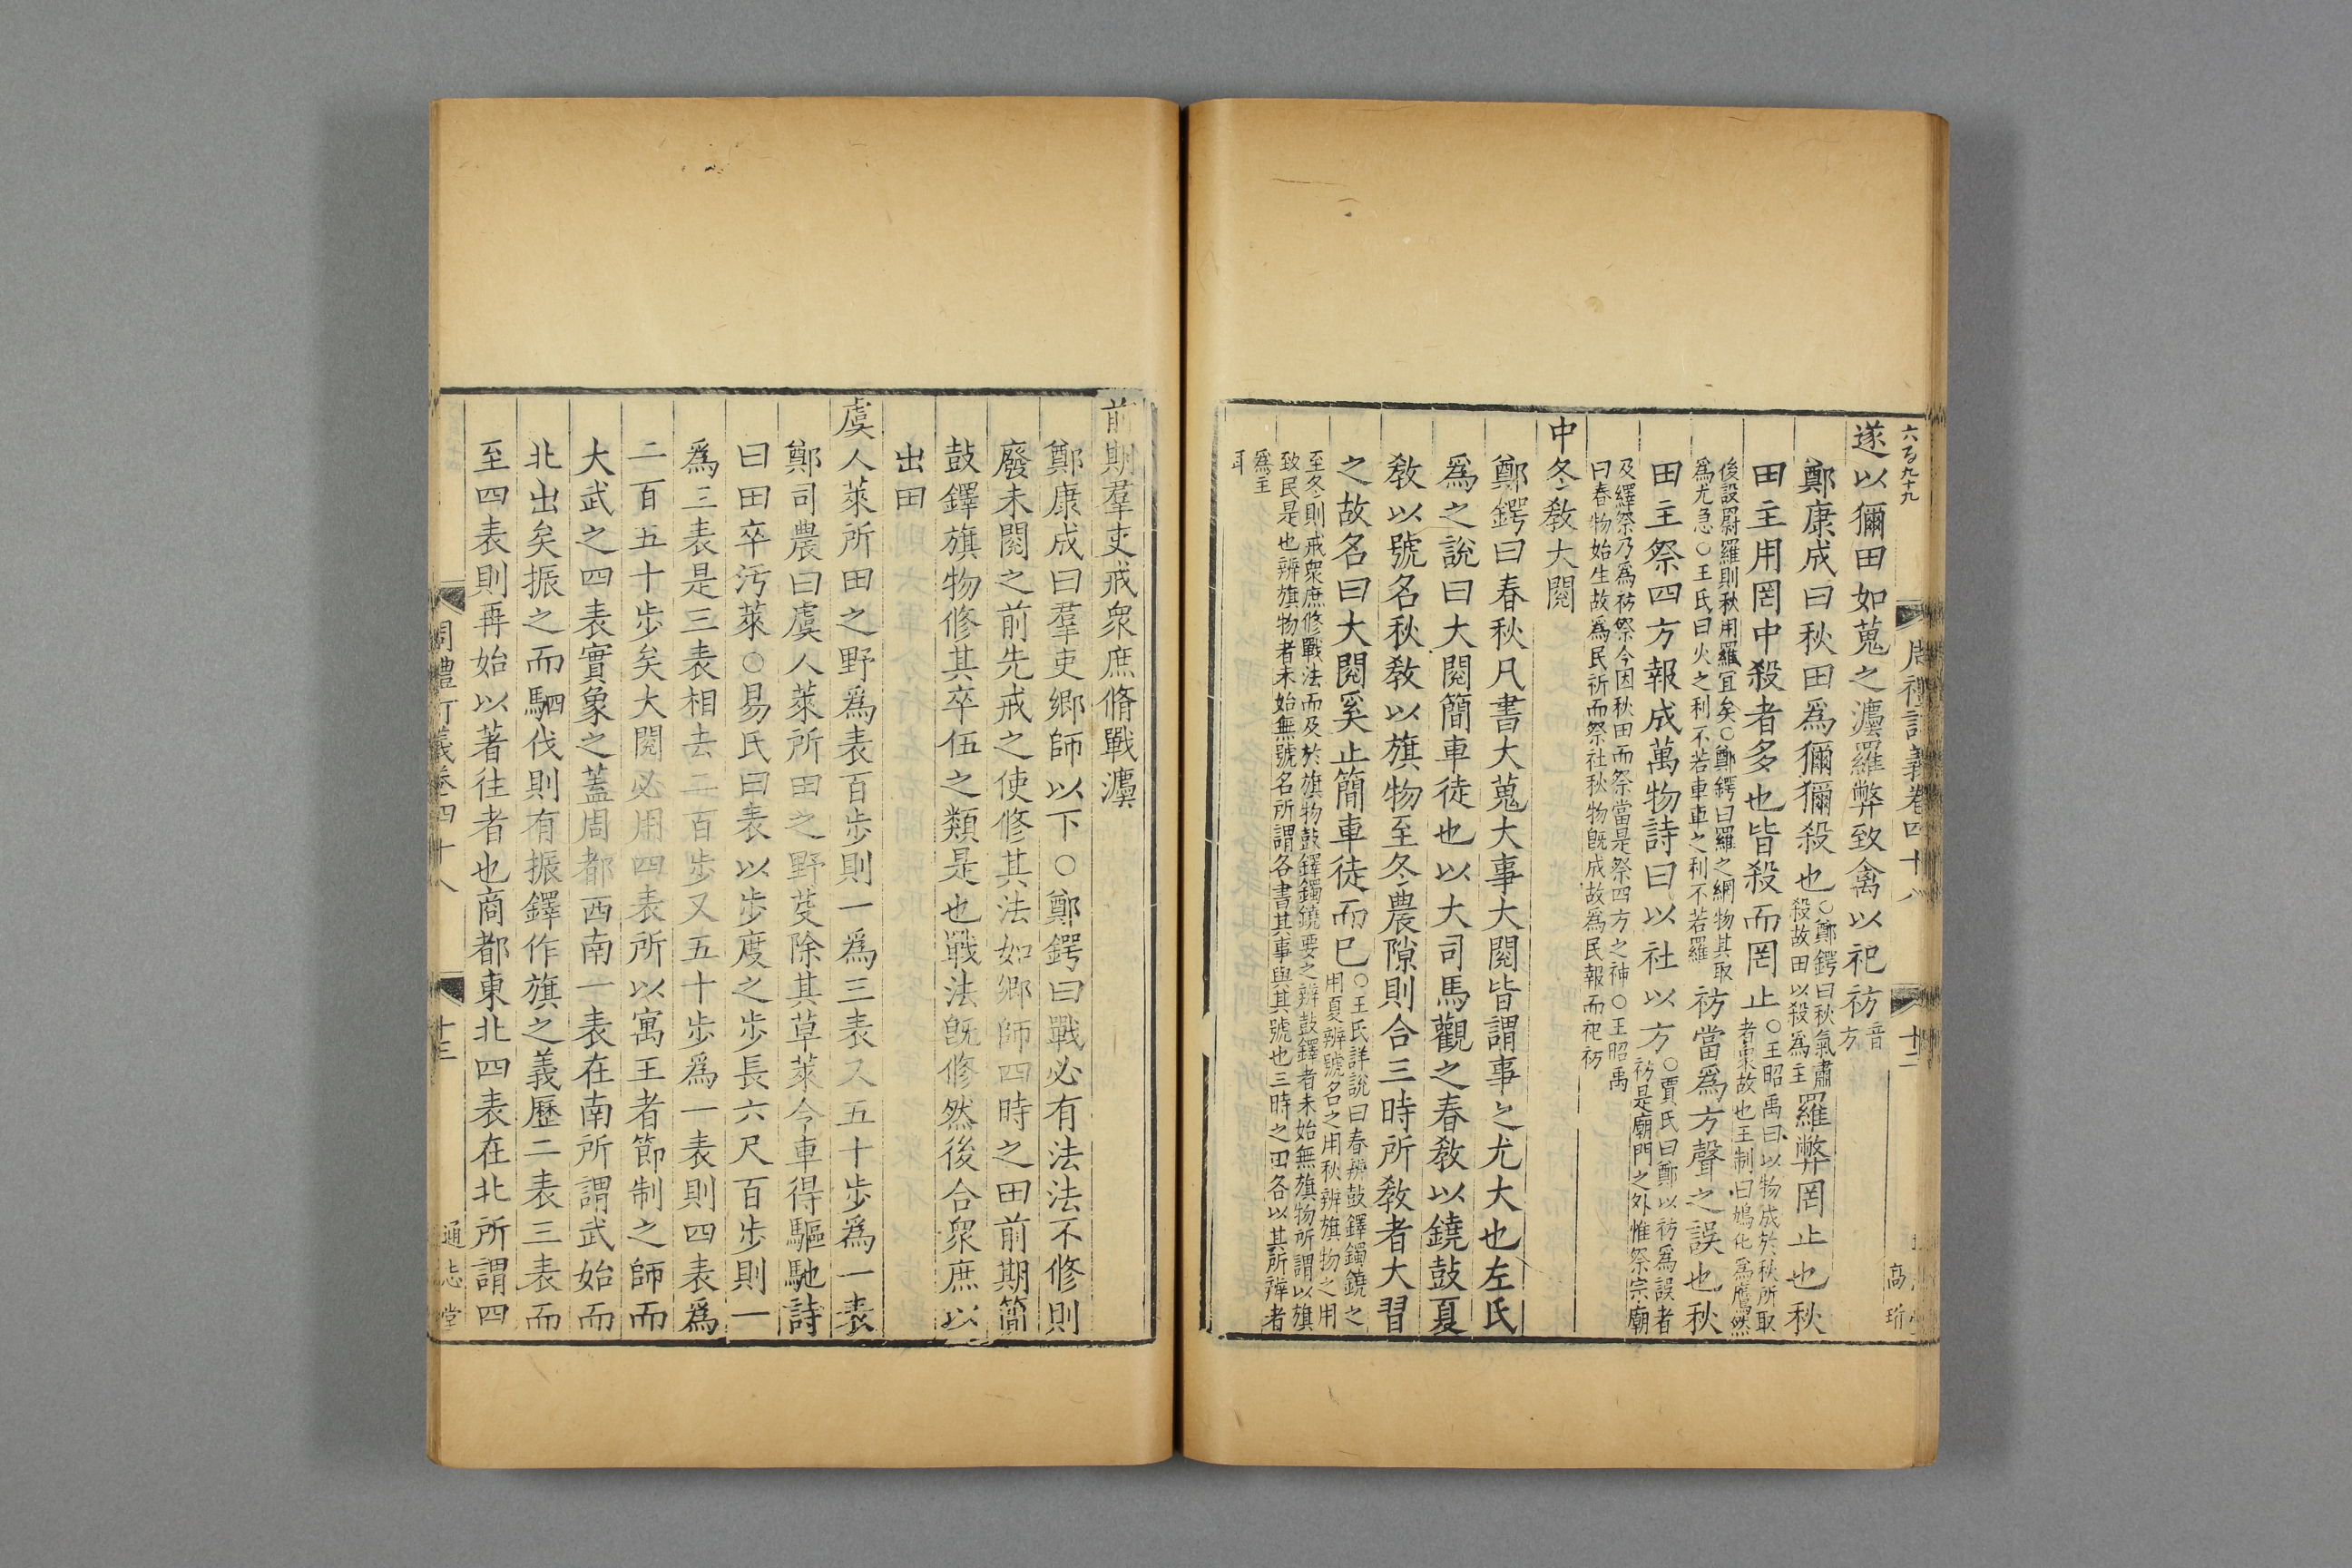 六百九十九
遂以獮田如蒐之灋羅弊致禽以祀祊音方
鄭康成曰秋田爲獮獮殺也○鄭鍔曰秋氣肅殺故田以殺爲主羅弊罔止也秋
田主用罔中殺者多也皆殺而罔止○王昭禹曰以物成於秋所取者衆故也王制曰鳩化爲鷹然
後設罻羅則秋用羅冝矣○鄭鍔曰羅之網物其取爲尤急○王氏曰火之利不若車車之利不若羅祊當爲方聲之誤也秋
田主祭四方報成萬物詩曰以社以方○賈氏曰鄭以祊爲誤者祊是廟門之外惟祭宗廟
及繹祭乃爲祊祭今因秋田而祭當是祭四方之神○王昭禹曰春物始生故爲民祈而祭社秋物旣成故爲民報而祀祊
中冬敎大閱
鄭鍔曰春秋凡書大蒐大事大閱皆謂事之尤大也左氏
爲之說曰大閱簡車徒也以大司馬觀之春敎以鐃鼓夏
敎以號名秋敎以旗物至冬農隙則合三時所敎者大習
之故名曰大閱奚止簡車徒而已○王氏詳說曰春辨鼓鐸鐲鐃之用夏辨號名之用秋辨旗物之用
至冬則戒衆庶修戰法而及於旗物鼓鐸鐲鐃要之辨鼓鐸者未始無旗物所謂以旗致民是也辨旗物者未始無號名所謂各書其事與其號也三時之田各以其所辨者
爲主耳
周禮訂義卷四十八
十二
高珩
前期羣吏戒衆庶脩戰灋
鄭康成曰羣吏鄉師以下○鄭鍔曰戰必有法法不修則
廢未閱之前先戒之使修其法如鄉師四時之田前期簡
鼓鐸旗物修其卒伍之類是也戰法旣修然後合衆庶以
出田
虞人萊所田之野爲表百步則一爲三表又五十步爲一表
鄭司農曰虞人萊所田之野芟除其草萊令車得驅馳詩
曰田卒汚萊○易氏曰表以步度之步長六尺百步則一
爲三表是三表相去二百步又五十步爲一表則四表爲
二百五十步矣大閱必用四表所以寓王者節制之師而
大武之四表實象之蓋周都西南一表在南所謂武始而
北出矣振之而駟伐則有振鐸作旗之義歷二表三表而
至四表則再始以著往者也商都東北四表在北所謂四
周禮訂義卷四十八
十三
通志堂